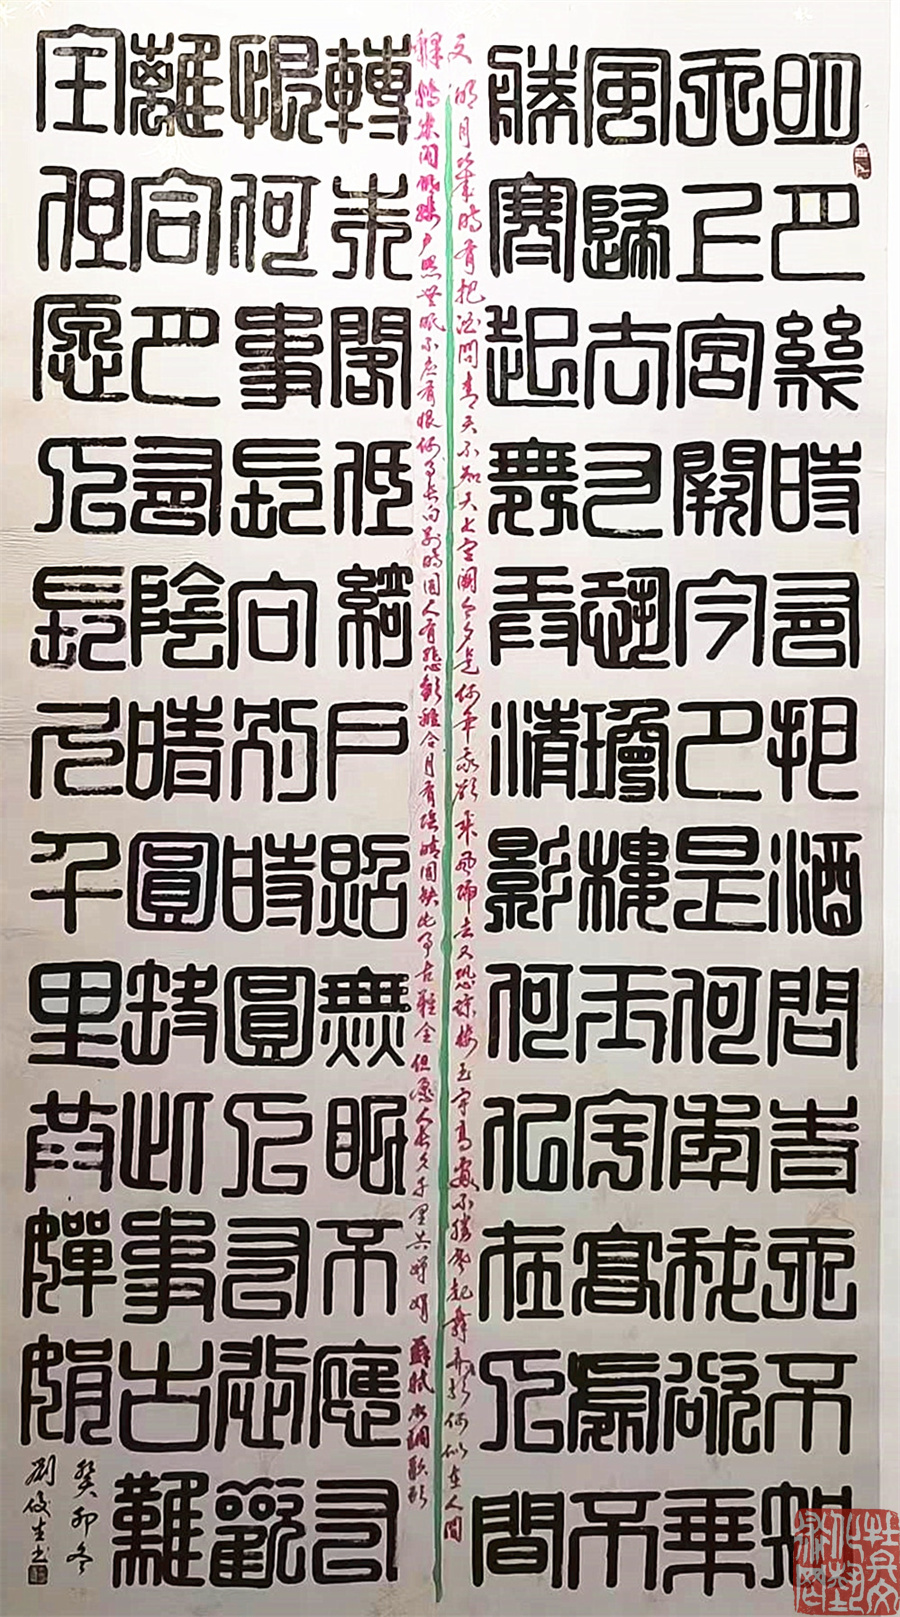 明月幾時有把酒問青天不知
天上宮闕今夕是何年我欲乘
風歸去又恐瓊樓玉宇高處不
勝寒起舞弄清影何似在人間
释文
明月幾時有把酒問青天不知天上宫阙今夕是何年我欲乘風歸去又恐瓊楼玉宇高處不勝寒起舞弄影何似在人間
轉朱閣低綺户照無眠不应有恨何事长向别時圆人有悲歡離合月有陰晴圆缺此事古難全但愿人长久千里共嬋娟 蘇軾水調歌头
轉朱閣低綺戶照無眠不應有
恨何事長向別時圓人有悲歡
離合月有陰晴圓缺此事古難
全但愿人長久千里共嬋娟
癸卯冬
劉俊生书